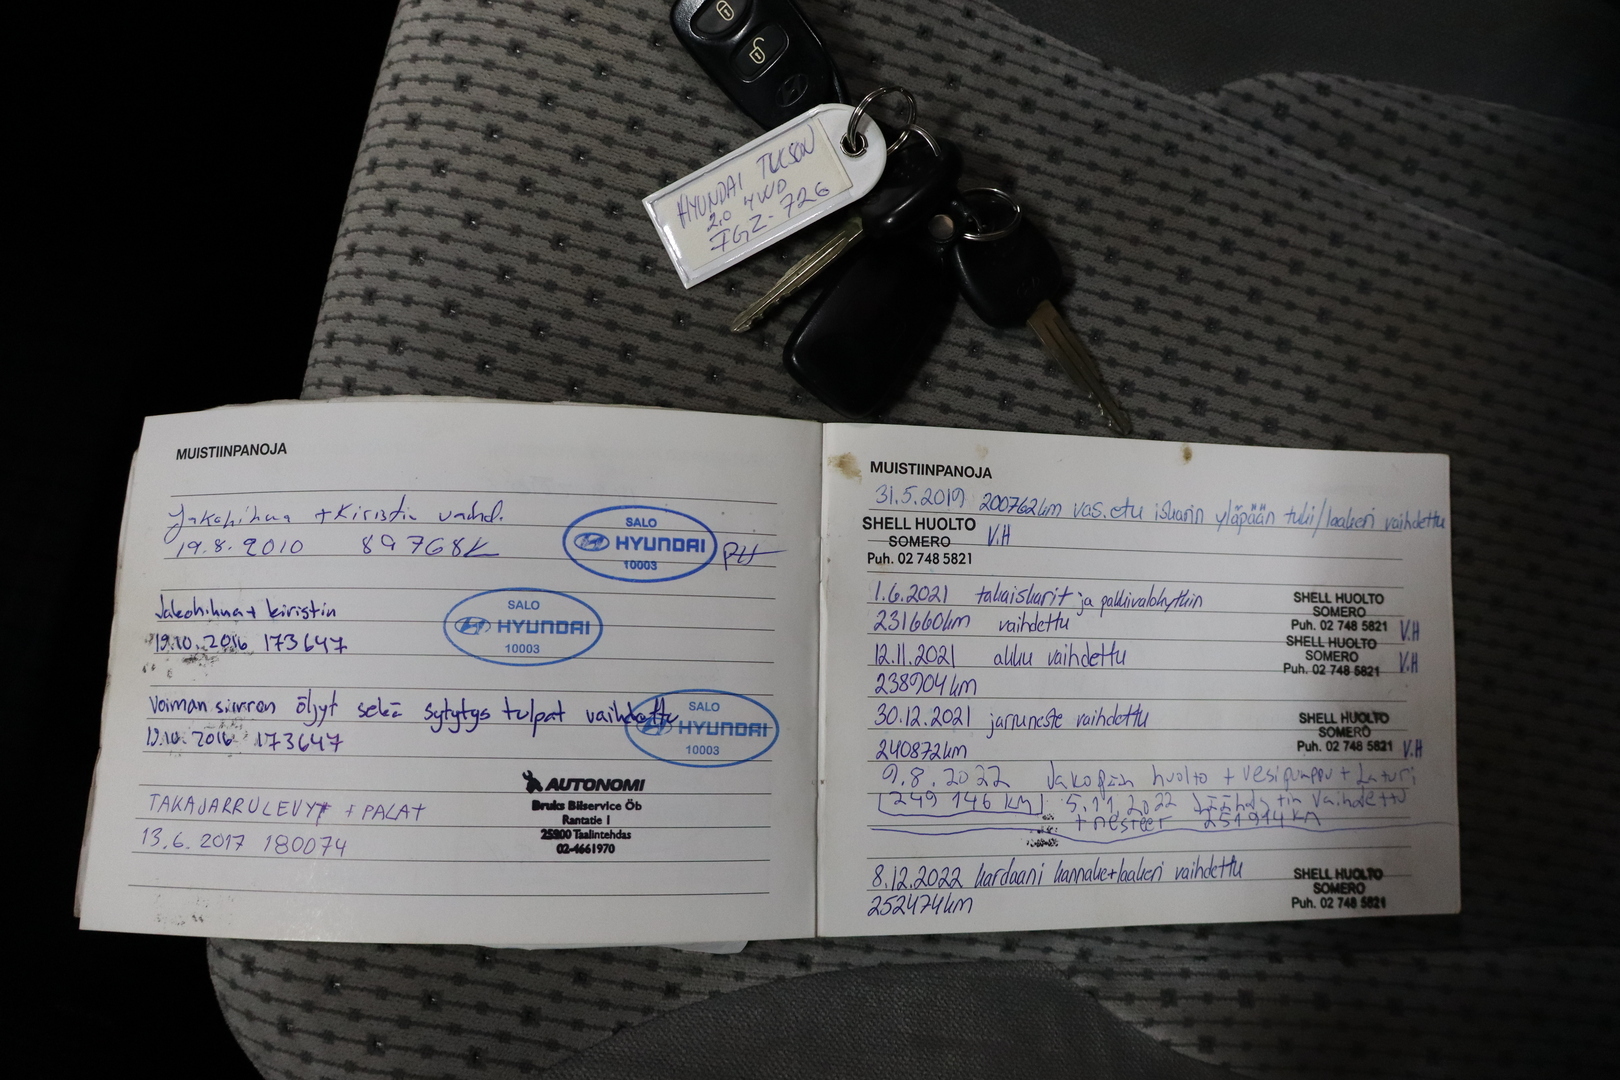 HYUNDAI TUCSON
2.0 4WD
IGZ-726
MUISTIINPANOJA
Jakohihna + kiristin vaihd.
19.8.2010 89768k
SALO
HYUNDAI
10003
RH
Jakohihna + kiristin
19.10.2016 173647
SALO
HYUNDAI
10003
Voiman siirron öljyt sekä sytytys tulpat vaihdettu
19.10.2016 173647
SALO
HYUNDAI
10003
TAKAJARRULEVYT + PALAT
13.6.2017 180074
AUTONOMI
Bruks Bilservice Öb
Rantatie 1
25900 Taalintehdas
02-4661970
MUISTIINPANOJA
31.5.2019 200762km vas.etu iskarin yläpään tuki/laakeri vaihdettu
SHELL HUOLTO
SOMERO
Puh. 02 748 5821
V.H
1.6.2021 takaiskarit ja polkivalokytkin
231660km vaihdettu
SHELL HUOLTO
SOMERO
Puh. 02 748 5821 V.H
12.11.2021 akku vaihdettu
238904km
SHELL HUOLTO
SOMERO
Puh. 02 748 5821 V.H
30.12.2021 jarruneste vaihdettu
240872km
SHELL HUOLTO
SOMERO
Puh. 02 748 5821 V.H
9.8.2022 Jakopään huolto + vesipumppu + Laturi
249 146 km 5.11.2022 Jäähdytin vaihdettu
+ nesteet 251914km
8.12.2022 kardaani kannake+laakeri vaihdettu
252474km
SHELL HUOLTO
SOMERO
Puh. 02 748 5821